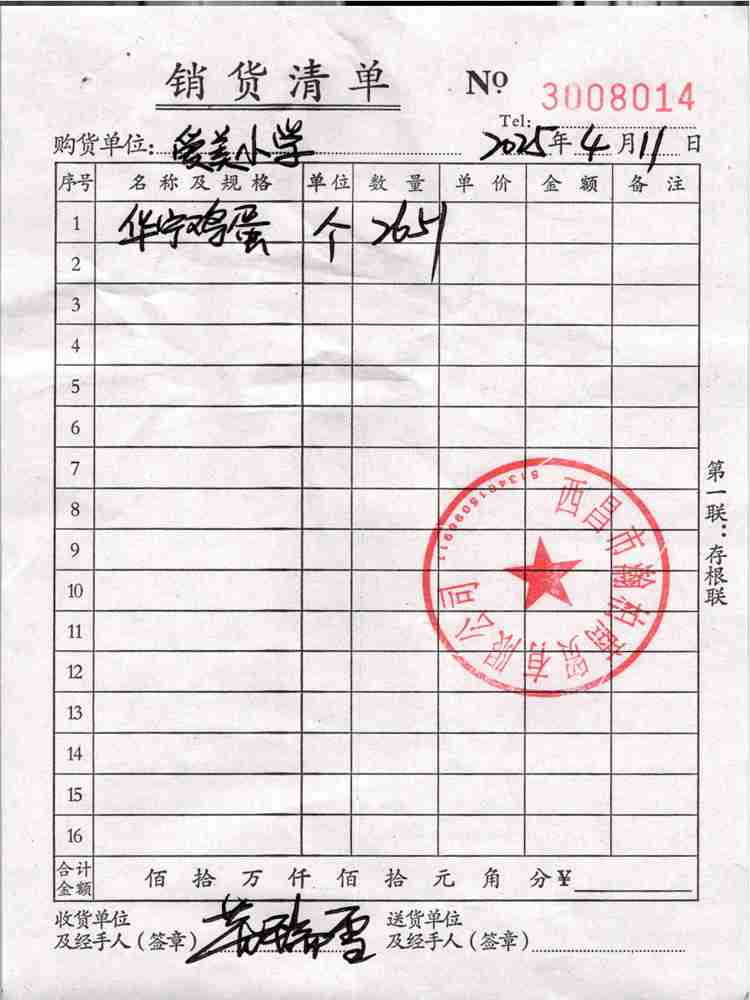 销货清单 № 3008014
Tel:
购货单位: 爱美小学 2025年4月11日
序号 名称及规格 单位 数量 单价 金额 备注
1 华宁鸡蛋 个 2651
2
3
4
5
6
7
8
9
10
11
12
13
14
15
16
合计金额 佰拾万仟佰拾元角分¥
收货单位
及经手人(签章)
送货单位
及经手人(签章)
第一联:存根联
西昌市瀚 商贸有限公司